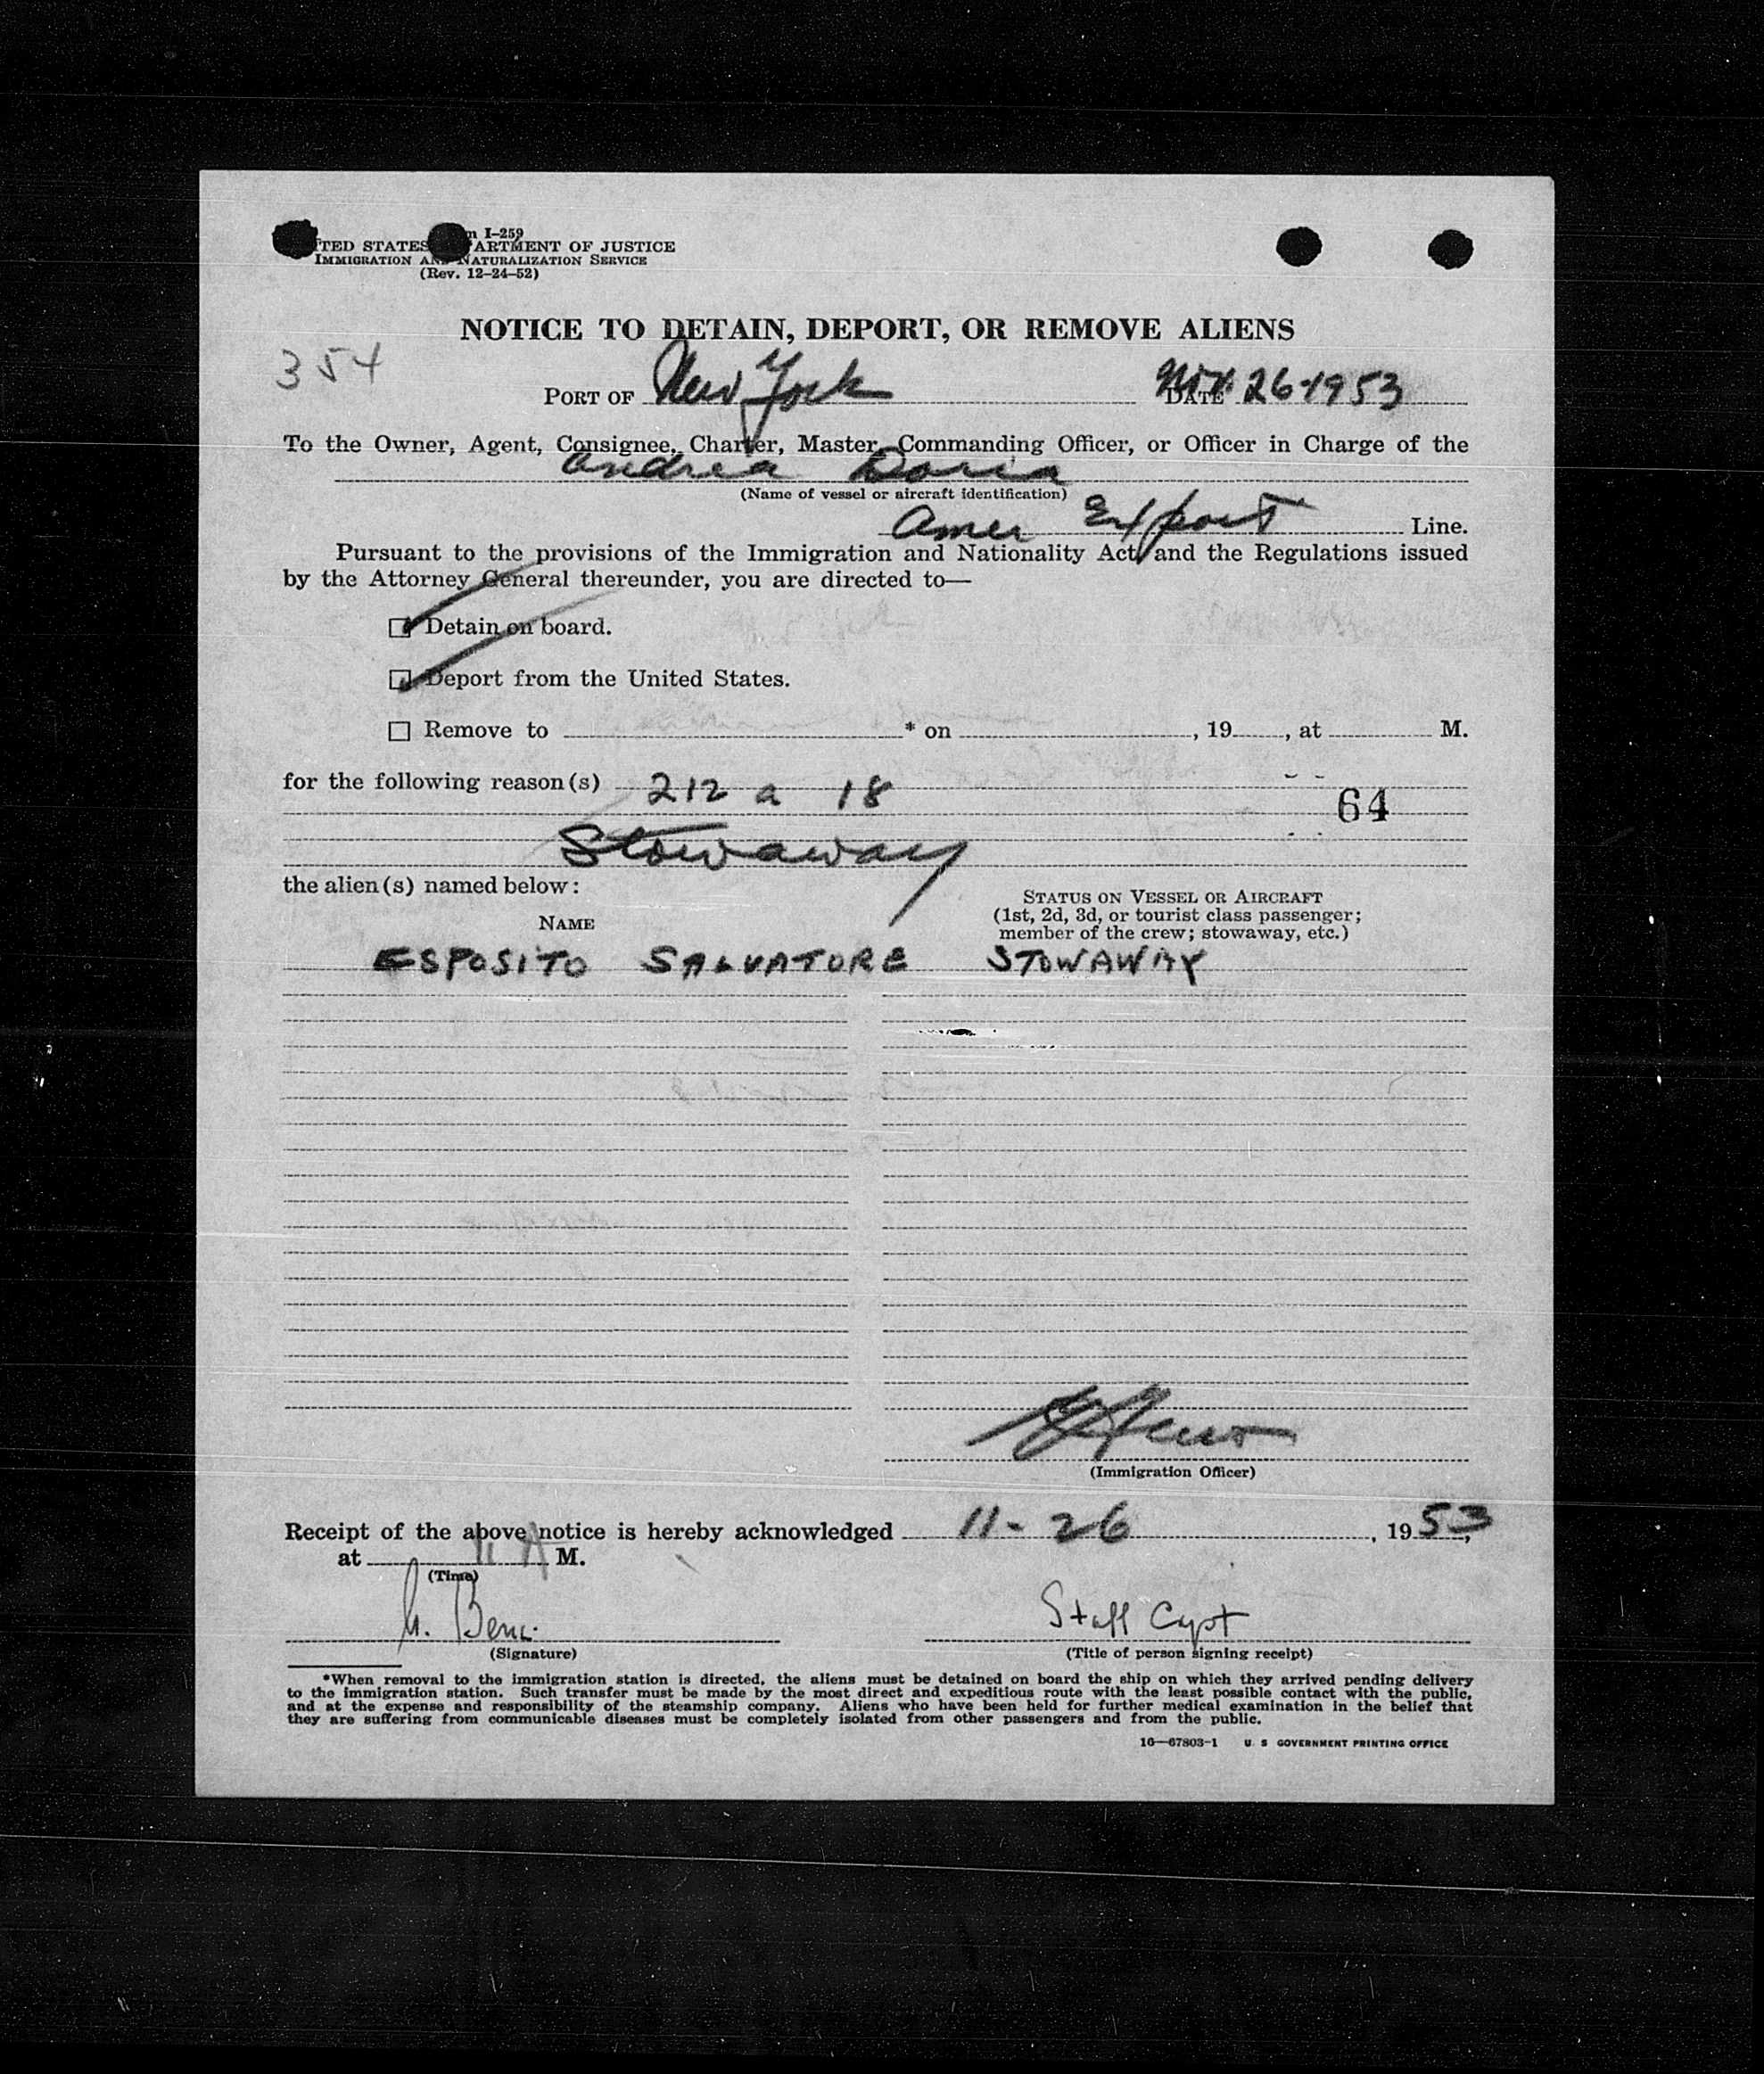 m I-259
TED STATES ARTMENT OF JUSTICE
IMMIGRATION AN NATURALIZATION SERVICE
(Rev. 12-24-52)
NOTICE TO DETAIN, DEPORT, OR REMOVE ALIENS
354
PORT OF New York DATE Nov. 26-1953
To the Owner, Agent, Consignee, Charter, Master, Commanding Officer, or Officer in Charge of the
Andrea Doria
(Name of vessel or aircraft identification)
Amer Export Line.
Pursuant to the provisions of the Immigration and Nationality Act, and the Regulations issued
by the Attorney General thereunder, you are directed to—
Detain on board.
Deport from the United States.
Remove to * on , 19 , at M.
for the following reason(s) 212 a 18
64
Stowaway
the alien(s) named below:
NAME
STATUS ON VESSEL OR AIRCRAFT
(1st, 2d, 3d, or tourist class passenger;
member of the crew; stowaway, etc.)
ESPOSITO SALVATORE STOWAWAY
(Immigration Officer)
Receipt of the above notice is hereby acknowledged 11-26 , 1953,
at 11 A M.
(Time)
(Signature)
Staff Capt
(Title of person signing receipt)
*When removal to the immigration station is directed, the aliens must be detained on board the ship on which they arrived pending delivery
to the immigration station. Such transfer must be made by the most direct and expeditious route with the least possible contact with the public,
and at the expense and responsibility of the steamship company. Aliens who have been held for further medical examination in the belief that
they are suffering from communicable diseases must be completely isolated from other passengers and from the public.
16—67803-1 U. S. GOVERNMENT PRINTING OFFICE